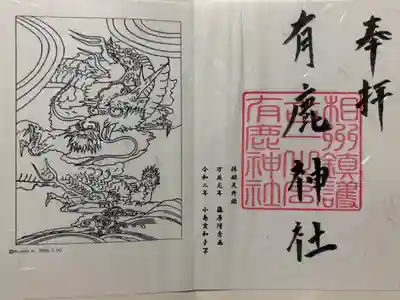 奉拝
有鹿神社
相州鎮護
有鹿神社
拝殿天井図
万延元年 藤原隆秀画
令和二年 小島実和子写